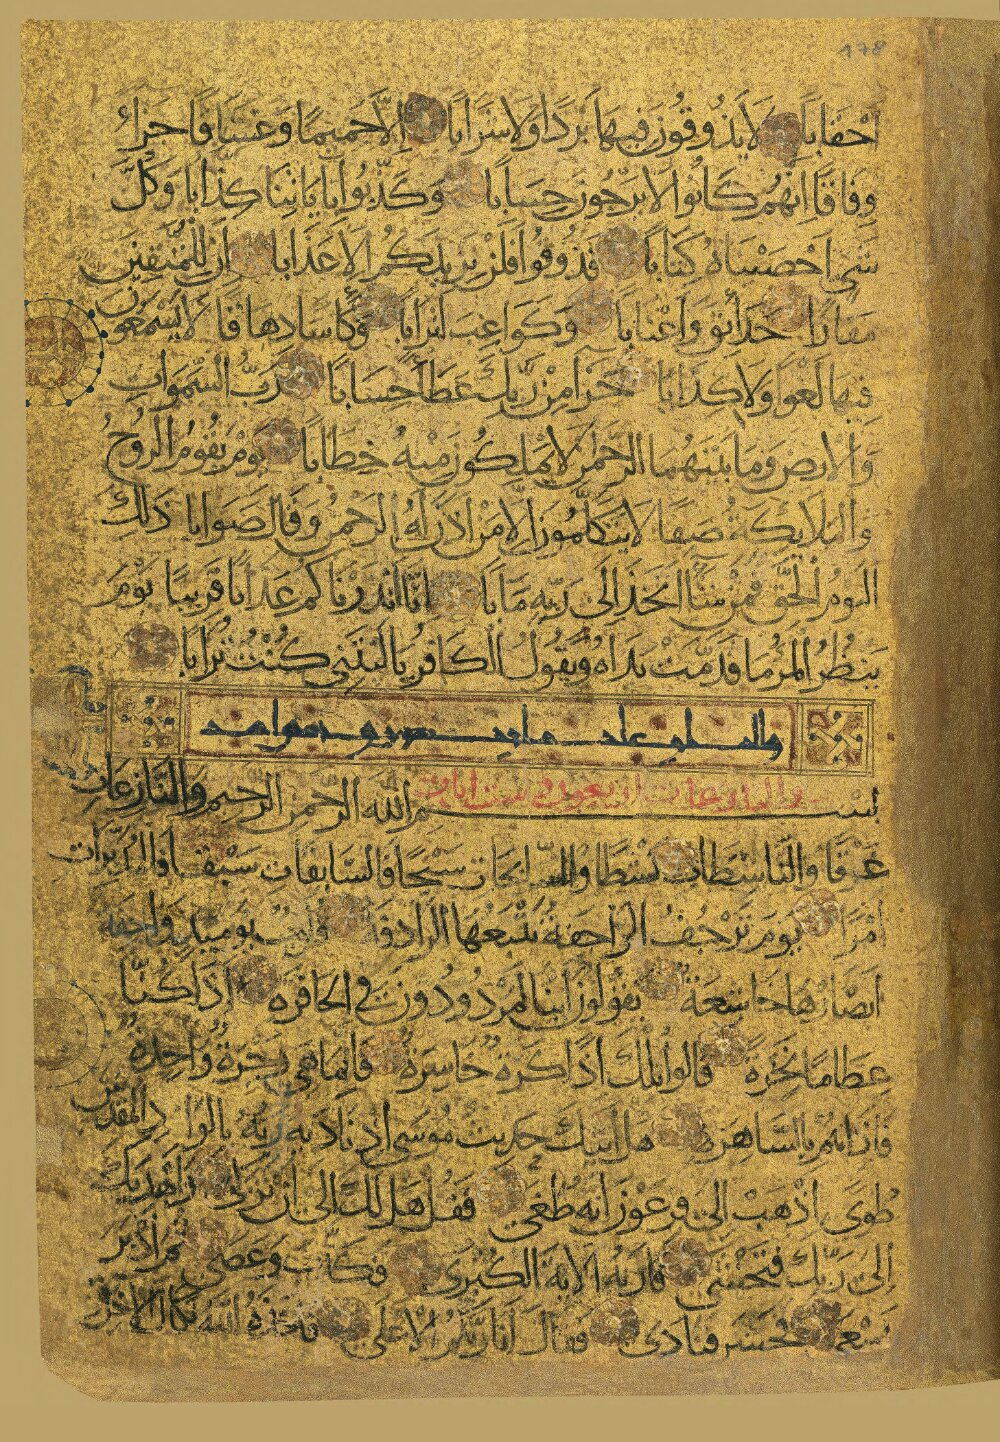 178
احقابا لا يذوقون فيها بردا ولا شرابا الا حميما وغساقا جزاء
وفاقا انهم كانوا لا يرجون حسابا وكذبوا باياتنا كذابا وكل
شىء احصيناه كتابا فذوقوا فلن نزيدكم الا عذابا ان للمتقين
مفازا حدائق واعنابا وكواعب اترابا وكاسا دهاقا لا يسمعون
فيها لغوا ولا كذابا جزاء من ربك عطاء حسابا رب السموات
والارض وما بينهما الرحمن لا يملكون منه خطابا يوم يقوم الروح
والملايكة صفا لا يتكلمون الا من اذن له الرحمن وقال صوابا ذلك
اليوم الحق فمن شا اتخذ الى ربه مابا انا انذرناكم عذابا قريبا يوم
ينظر المرء ما قدمت يداه ويقول الكافر يا ليتنى كنت ترابا
والنازعات اربعون وست ايات
بسم الله الرحمن الرحيم والنازعات
غرقا والناشطات نشطا والسابحات سبحا فالسابقات سبقا فالمدبرات
امرا يوم ترجف الراجفة تتبعها الرادفة قلوب يوميذ واجفة
ابصارها خاشعة يقولون اينا لمردودون فى الحافرة اذا كنا
عظاما نخرة قالوا تلك اذا كرة خاسرة فانما هى زجرة واحدة
فاذا هم بالساهرة هل اتيك حديث موسى اذ ناديه ربه بالواد المقدس
طوى اذهب الى فرعون انه طغى فقل هل لك الى ان تزكى واهديك
الى ربك فتخشى فاريه الاية الكبرى فكذب وعصى ثم ادبر
يسعى فحشر فنادى فقال انا ربكم الاعلى فاخذه الله نكال الاخرة